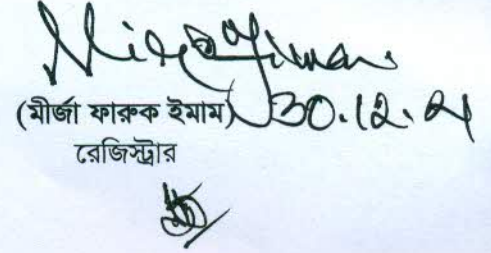 (মীর্জা ফারুক ইমাম) 30.12.21
রেজিস্ট্রার